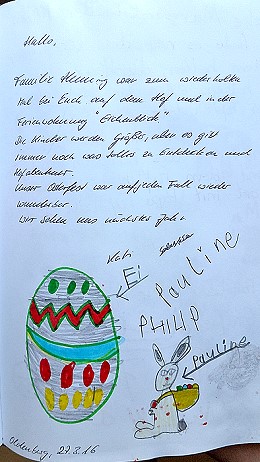 Hallo,
Familie Henning war zum wiederholten
Mal bei Euch auf dem Hof und in der
Ferienwohnung "Eichenblick"
Die Kinder werden größer, aber es gibt
immer noch was Tolles zu Entdecken und
Unser Osterfest war auf jeden Fall wieder
wunderbar.
Wir sehen uns nächstes Jahr
Kati
Ei
Pauline
PHILIP
Pauline
Oldenburg, 27.3.16